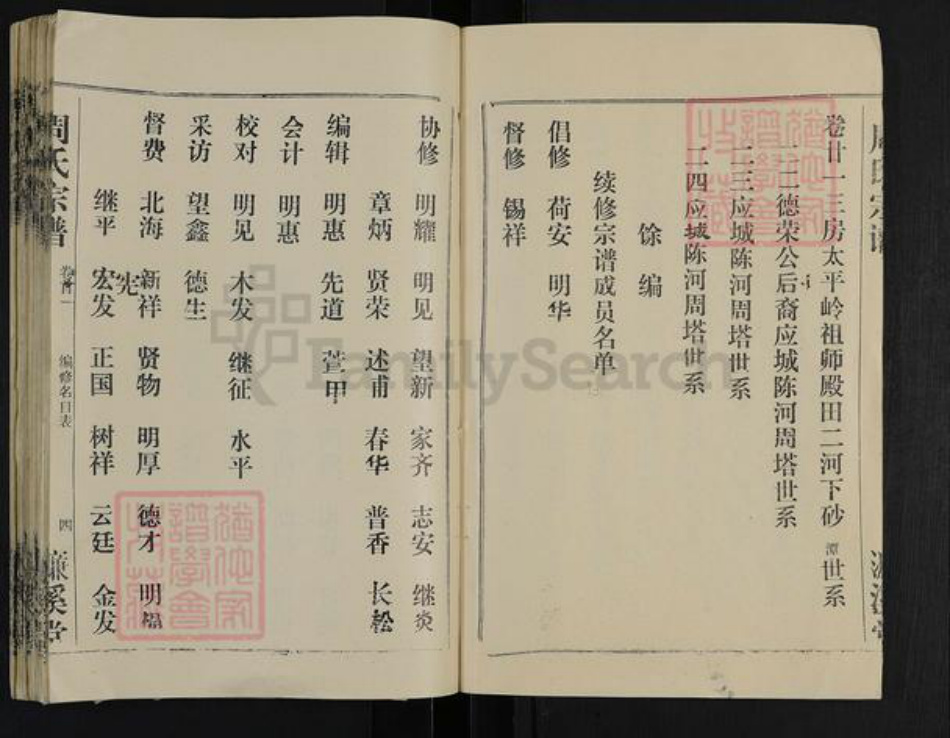 卷廿一三房太平岭祖师殿田二河下砂潭世系
二二德荣公后裔应城陈河周塔世系
二三应城陈河周塔世系
二四应城陈河周塔世系
馀编
续修宗谱成员名单
倡修 荷安 明华
督修 锡祥
协修 明耀 明见 望新 家齐 志安 继炎
章炳 贤荣 述甫 春华 普香 长松
编辑 明惠 先道 萱甲
会计 明惠
校对 明见 木发 继征 水平
采访 望鑫 德生
督费 北海 新祥 贤物 明厚 德才 明福
宪
继平 宏发 正国 树祥 云廷 金发
周氏宗谱 卷首一 编修名目表 四 濂溪堂
FamilySearch